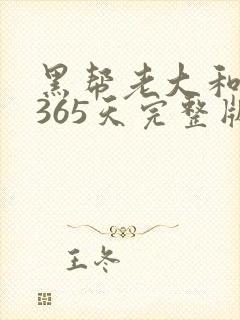 黑帮老大和
365天完整版
王冬